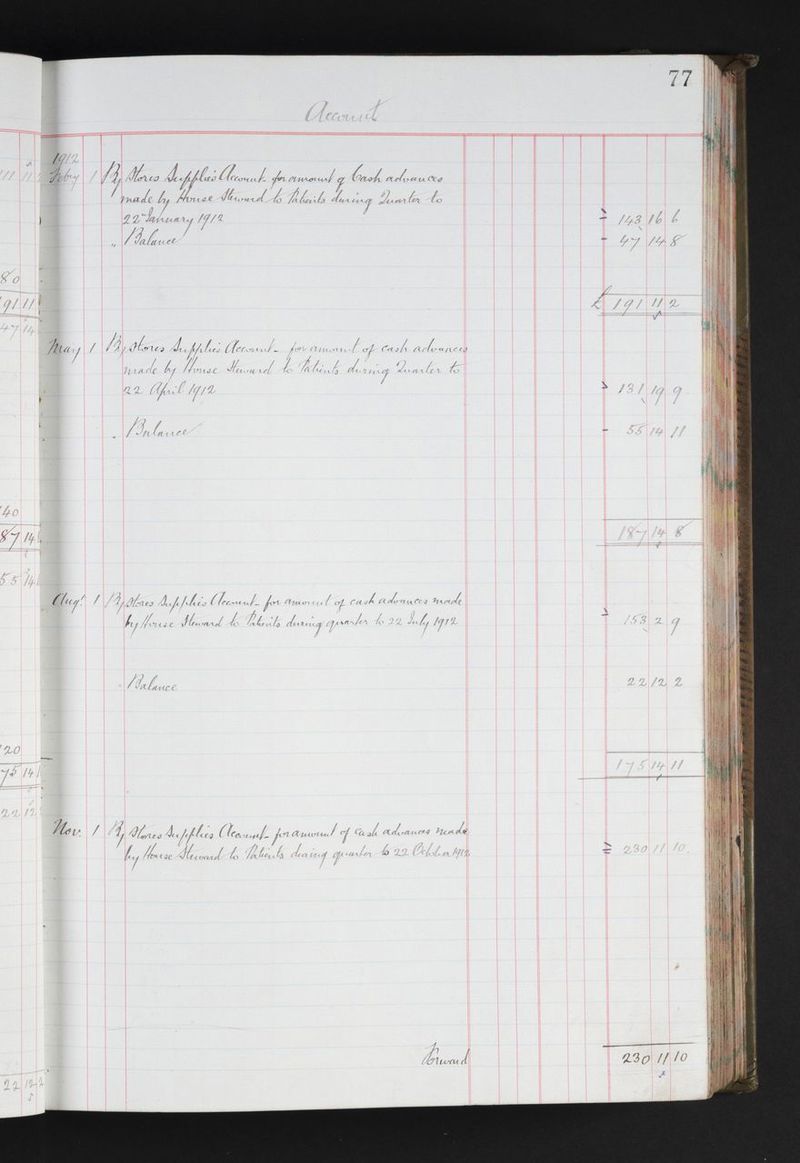 77
Account
1912
Feby 1 By Stores Supplies Account for amount of Cash advances
made by House Steward to Patients during Quarter to
22 January 1912 143 16 6
" Balance 47 14 8
£ 191 11 2
May 1 By Stores Supplies Account for amount of cash advances
made by House Steward to Patients during Quarter to
22 April 1912 131 19 9
" Balance 55 14 11
187 14 8
Augt 1 By Stores Supplies Account for amount of cash advances made
by House Steward to Patients during quarter to 22 July 1912 153 2 9
" Balance 22 12 2
175 14 11
Nov. 1 By Stores Supplies Account for amount of cash advances made
by House Steward to Patients during quarter to 22 October 1912 230 11 10
Forward 230 11 10